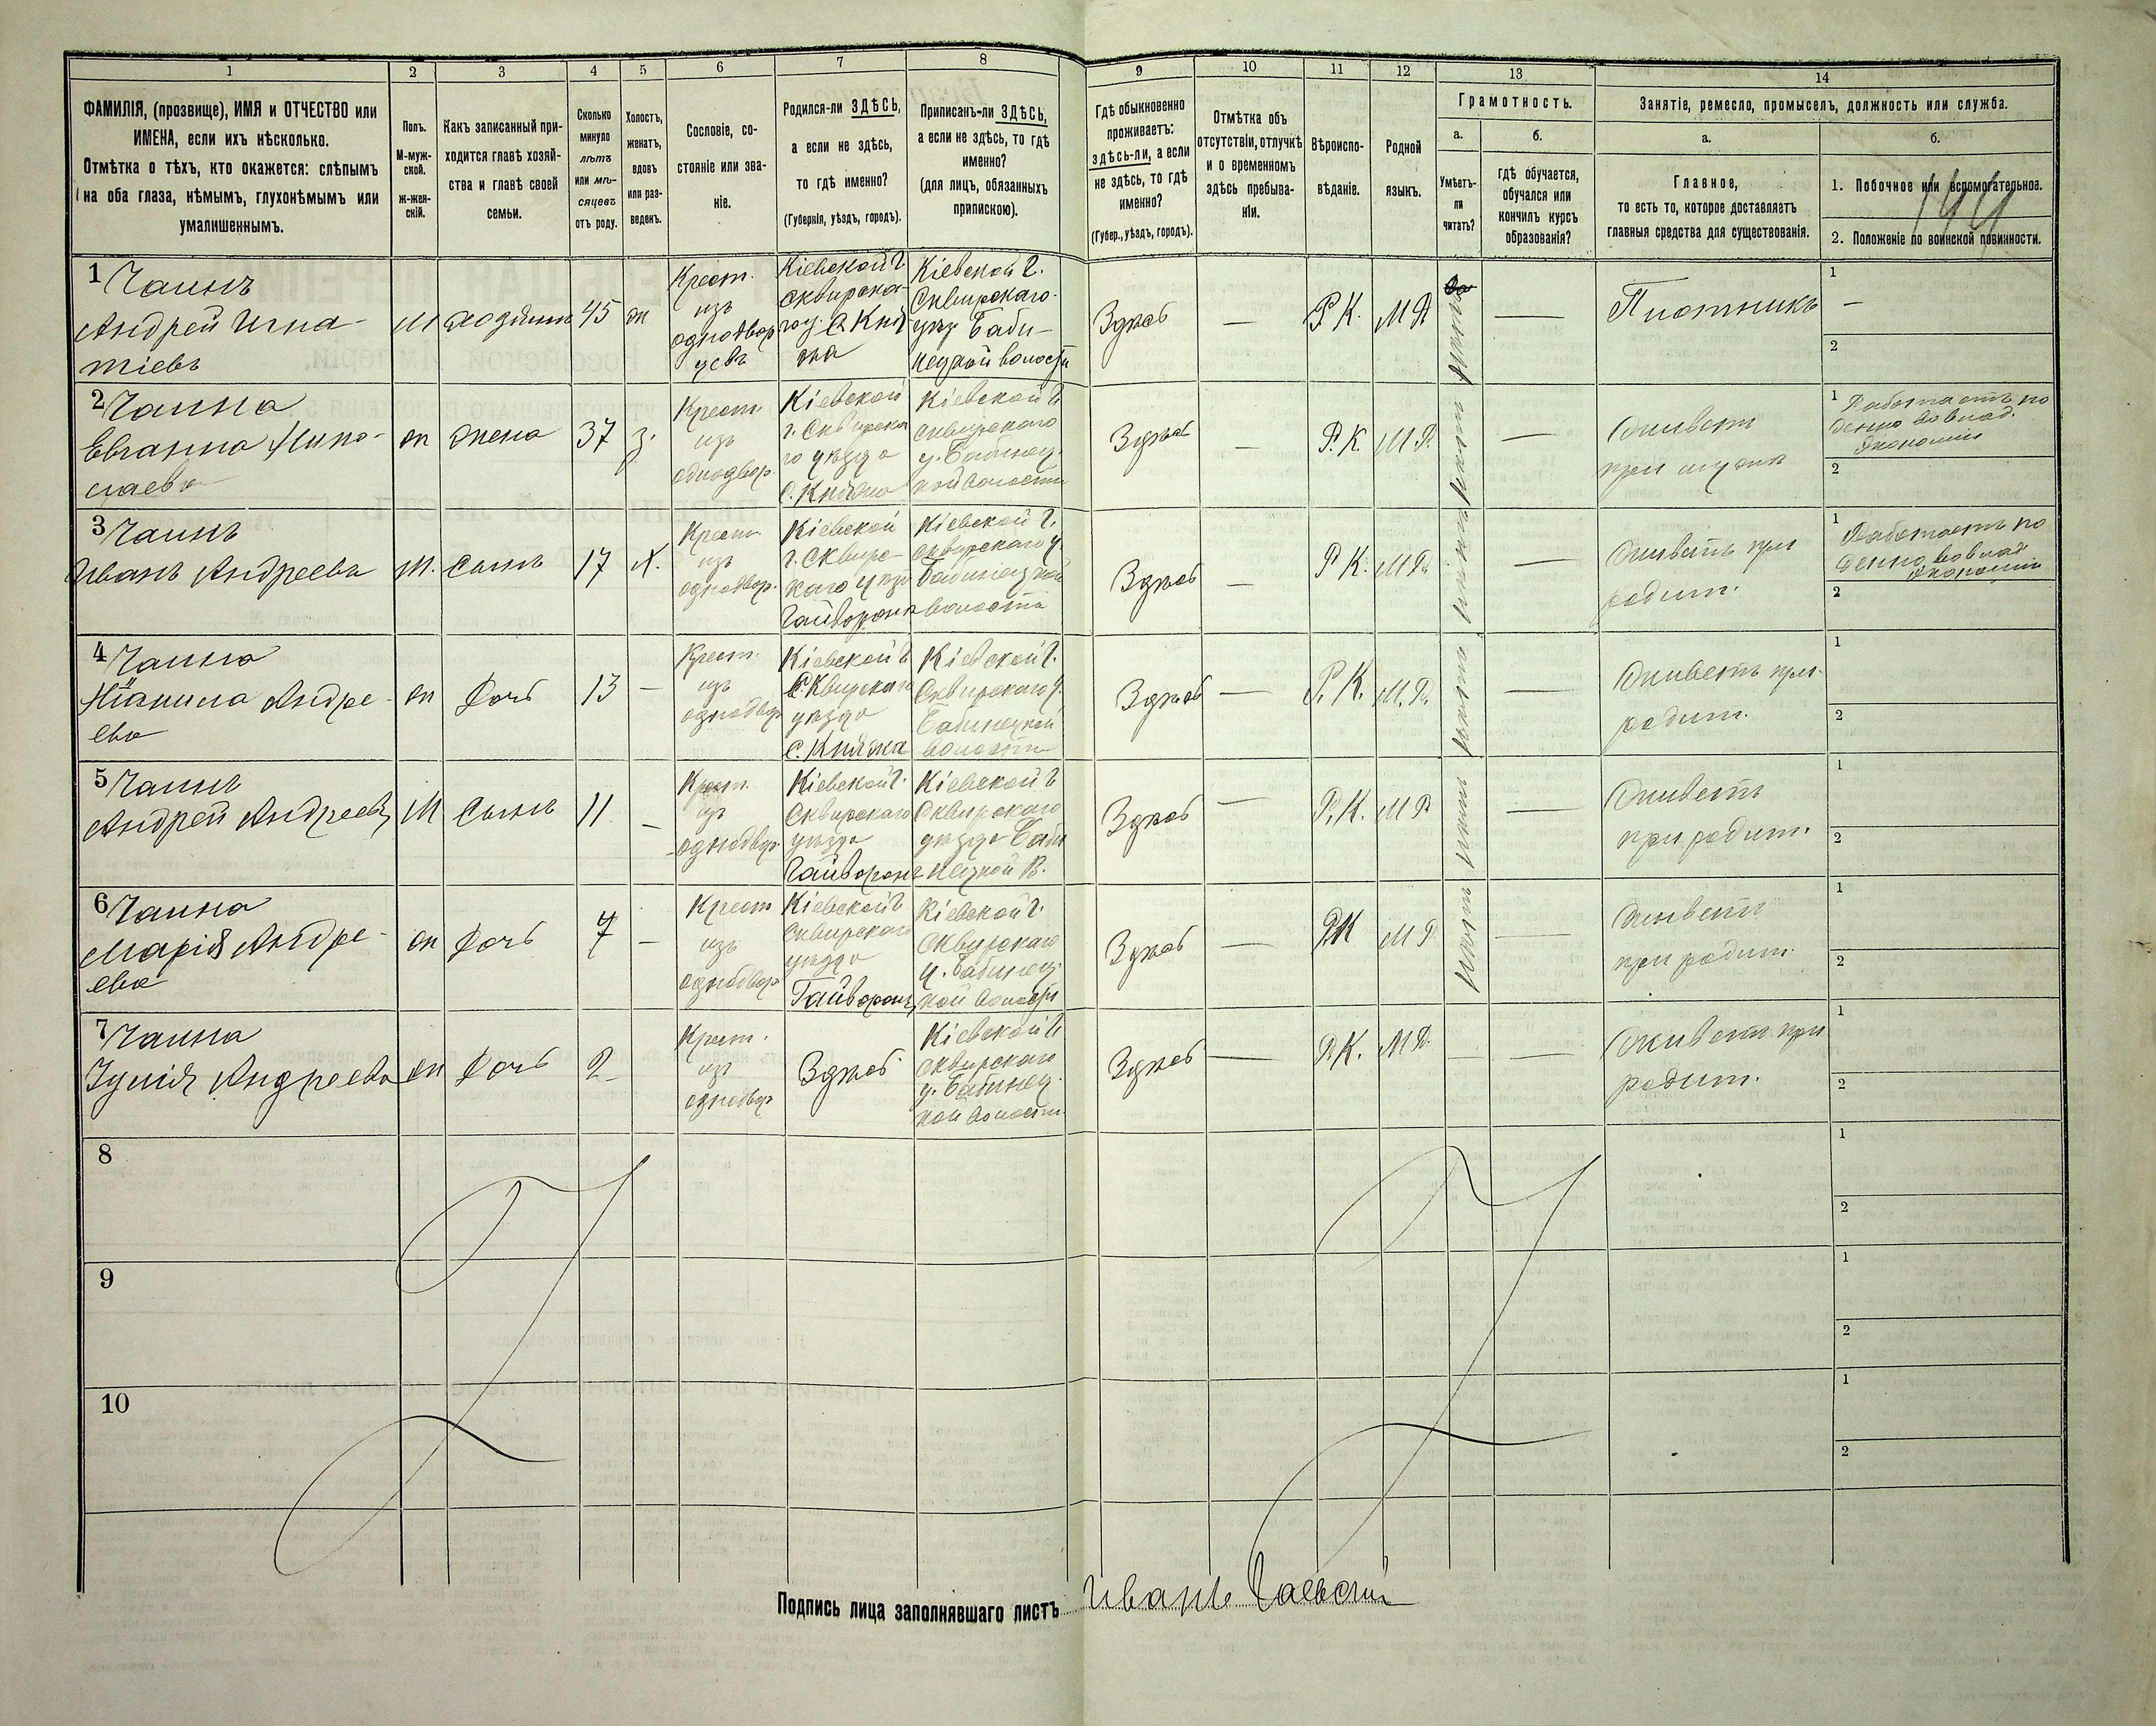 1 2 3 4 5 6 7 8 9 10 11 12 13 14
ФАМИЛІЯ, (прозвище), ИМЯ и ОТЧЕСТВО или
ИМЕНА, если ихъ нѣсколько.
Отмѣтка о тѣхъ, кто окажется: слѣпымъ
на оба глаза, нѣмымъ, глухонѣмымъ или
умалишеннымъ.
Полъ.
М-муж-
ской.
ж-жен-
скій.
Какъ записанный при-
ходится главѣ хозяй-
ства и главѣ своей
семьи.
Сколько
минуло
лѣтъ
или мѣ-
сяцевъ
отъ роду.
Холостъ,
женатъ,
вдовъ
или раз-
веденъ.
Сословіе, со-
стояніе или зва-
ніе.
Родился-ли ЗДѢСЬ,
а если не здѣсь,
то гдѣ именно?
(Губернія, уѣздъ, городъ).
Приписанъ-ли ЗДѢСЬ,
а если не здѣсь, то гдѣ
именно?
(для лицъ, обязанныхъ
припискою).
Гдѣ обыкновенно
проживаетъ:
здѣсь-ли, а если
не здѣсь, то гдѣ
именно?
(Губер., уѣздъ, городъ).
Отмѣтка объ
отсутствіи, отлучкѣ
и о временномъ
здѣсь пребыва-
ніи.
Вѣроиспо-
вѣданіе.
Родной
языкъ.
Грамотность.
а.
Умѣетъ-
ли
читать?
б.
гдѣ обучается,
обучался или
кончилъ курсъ
образованія?
Занятіе, ремесло, промыселъ, должность или служба.
а.
Главное,
то есть то, которое доставляетъ
главныя средства для существованія.
б.
1. Побочное или вспомогательное.
2. Положеніе по воинской повинности.
1
Андрей Игна-
тіевъ
М
хозяинъ
45
ж
Крест.
изъ
однодвор
цевъ
Кіевской г
сквирска-
Кіевской г.
Сквирскаго
уѣз Баби-
нецкой волости
Здѣсь
—
Р. К.
—
Плотникъ
1
—
2
2
ж
жена
37
з.
Крест
изъ
однодвор.
Кіевской
г. Сквирска
го уѣзда
С. Княжа
Кіевской г
сквирскаго
у. Бабинец
кой волости
Здѣсь
—
Р. К.
—
Живетъ
при мужѣ
1 Работаетъ по
денно во влад.
Экономіи
2
3
Иванъ Андреевъ
М.
Сынъ
17
Х.
Крест
изъ
однодвор.
Кіевской
г. Сквирс-
каго уѣз
Гайворонъ
Кіевской г.
сквирскаго у.
Бабинецкой
волости
Здѣсь
—
Р. К.
—
Живетъ при
родит.
1 Работаетъ по
денно во влад
экономіи
2
4
Андре-
ева
ж
Дочь
13
—
Крест.
изъ
однодвор
Кіевской г
Сквирскаго
уѣзда
С. Княжа
Кіевской г.
Сквирскаго у.
Бабинецкой
волости
Здѣсь
—
Р. К.
—
Живетъ при
родит.
1
2
5
Андрей Андреевъ
М
Сынъ
11
—
Крест.
изъ
однодвор
Кіевской г.
Сквирскаго
уѣзда
Гайворонъ
Кіевской г
Сквирскаго
уѣзда Баби
нецкой В.
Здѣсь
—
Р. К.
—
Живетъ
при родит.
1
2
6
Марія Андре-
ева
ж
Дочь
7
—
Крест
изъ
однодвор
Кіевской г
сквирскаго
уѣзда
Гайворонъ
Кіевской г.
Сквирскаго
у. Бабинец
кой волости
Здѣсь
—
Р. К
—
Живетъ
при родит.
1
2
7
Юлія Андреева
ж
Дочь
2
Крест.
изъ
однодвор
Здѣсь
Кіевской г.
сквирскаго
у. Бабинец
кой волости
Здѣсь
—
Р. К.
—
—
Живетъ при
родит.
1
2
8
1
2
9
1
2
10
1
2
Подпись лица заполнявшаго листъ Иванъ